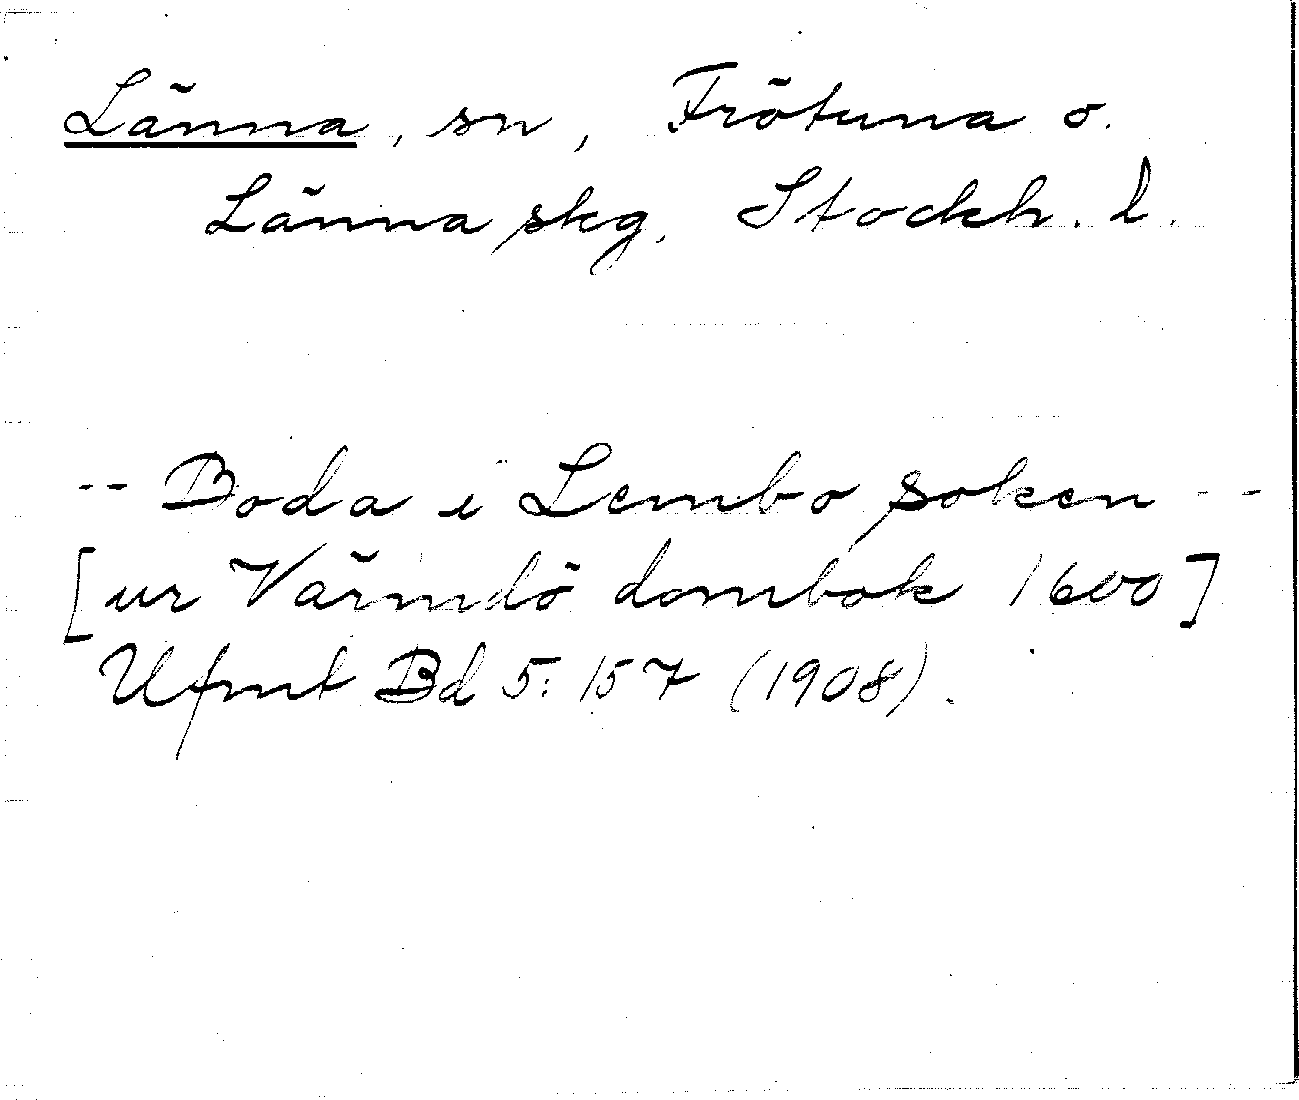 Länna, sn, Frötuna o.
Länna skg, Stockh. l.
-- Boda i Lembo soken --
[ur Värmdö dombok 1600]
Ufmt Bd 5: 157 (1908).